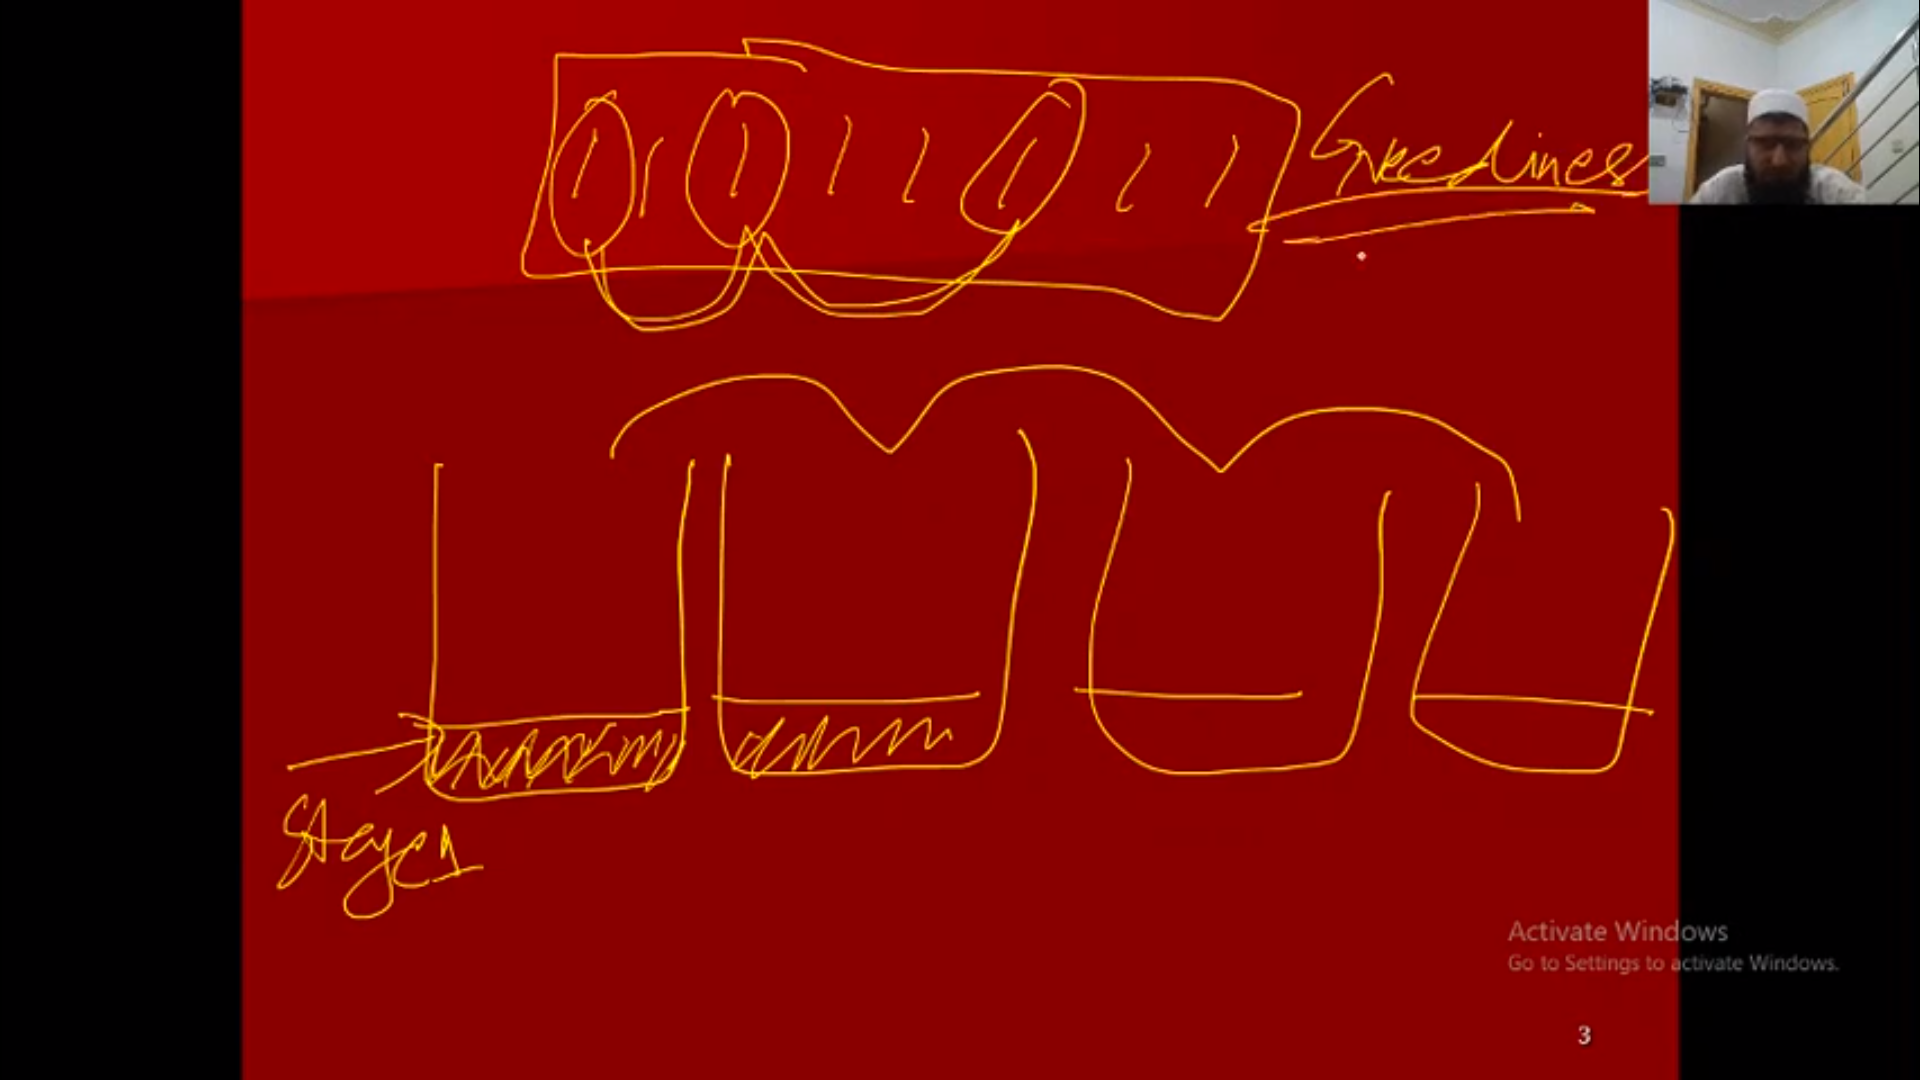 Greedines
Stage 1
Activate Windows
Go to Settings to activate Windows.
3